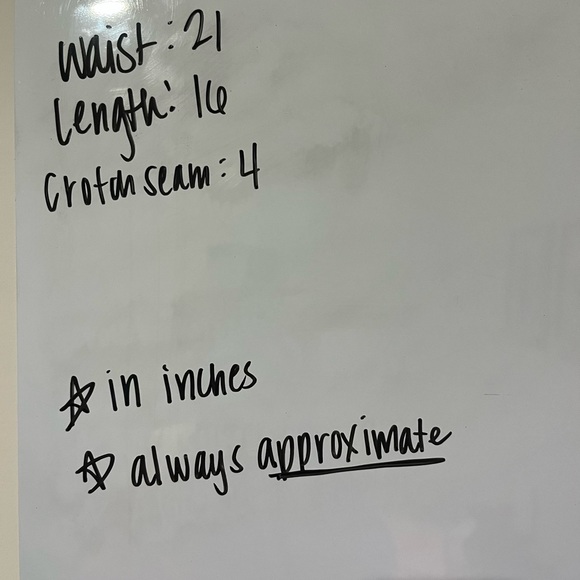 waist: 21
length: 16
crotch seam: 4
☆ in inches
☆ always approximate